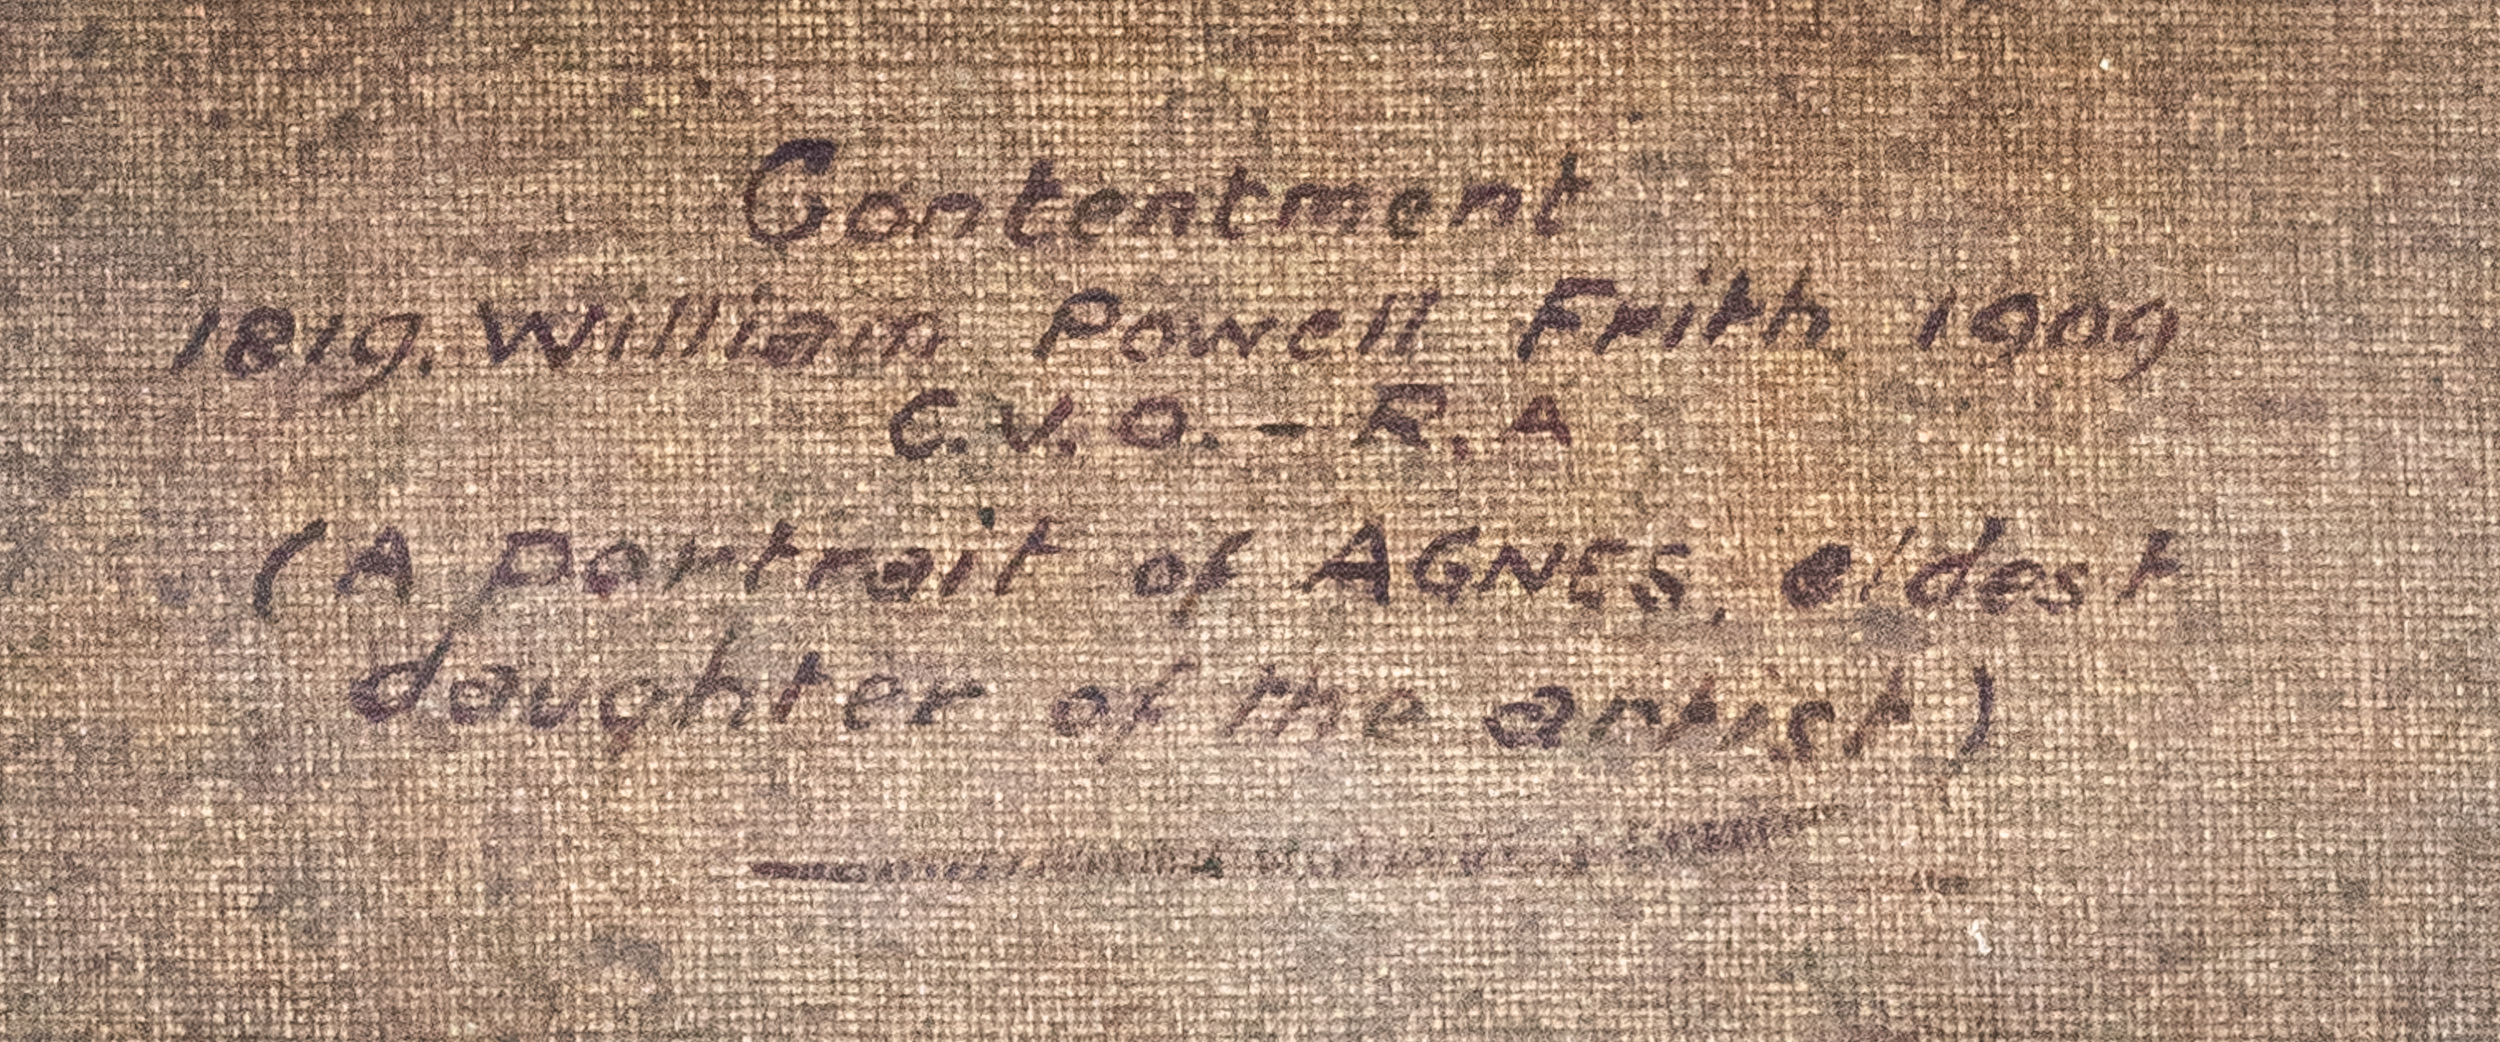 Contentment
1819. William Powell Frith 1909
C.V.O. - R.A
(A portrait of AGNES, eldest
daughter of the artist)